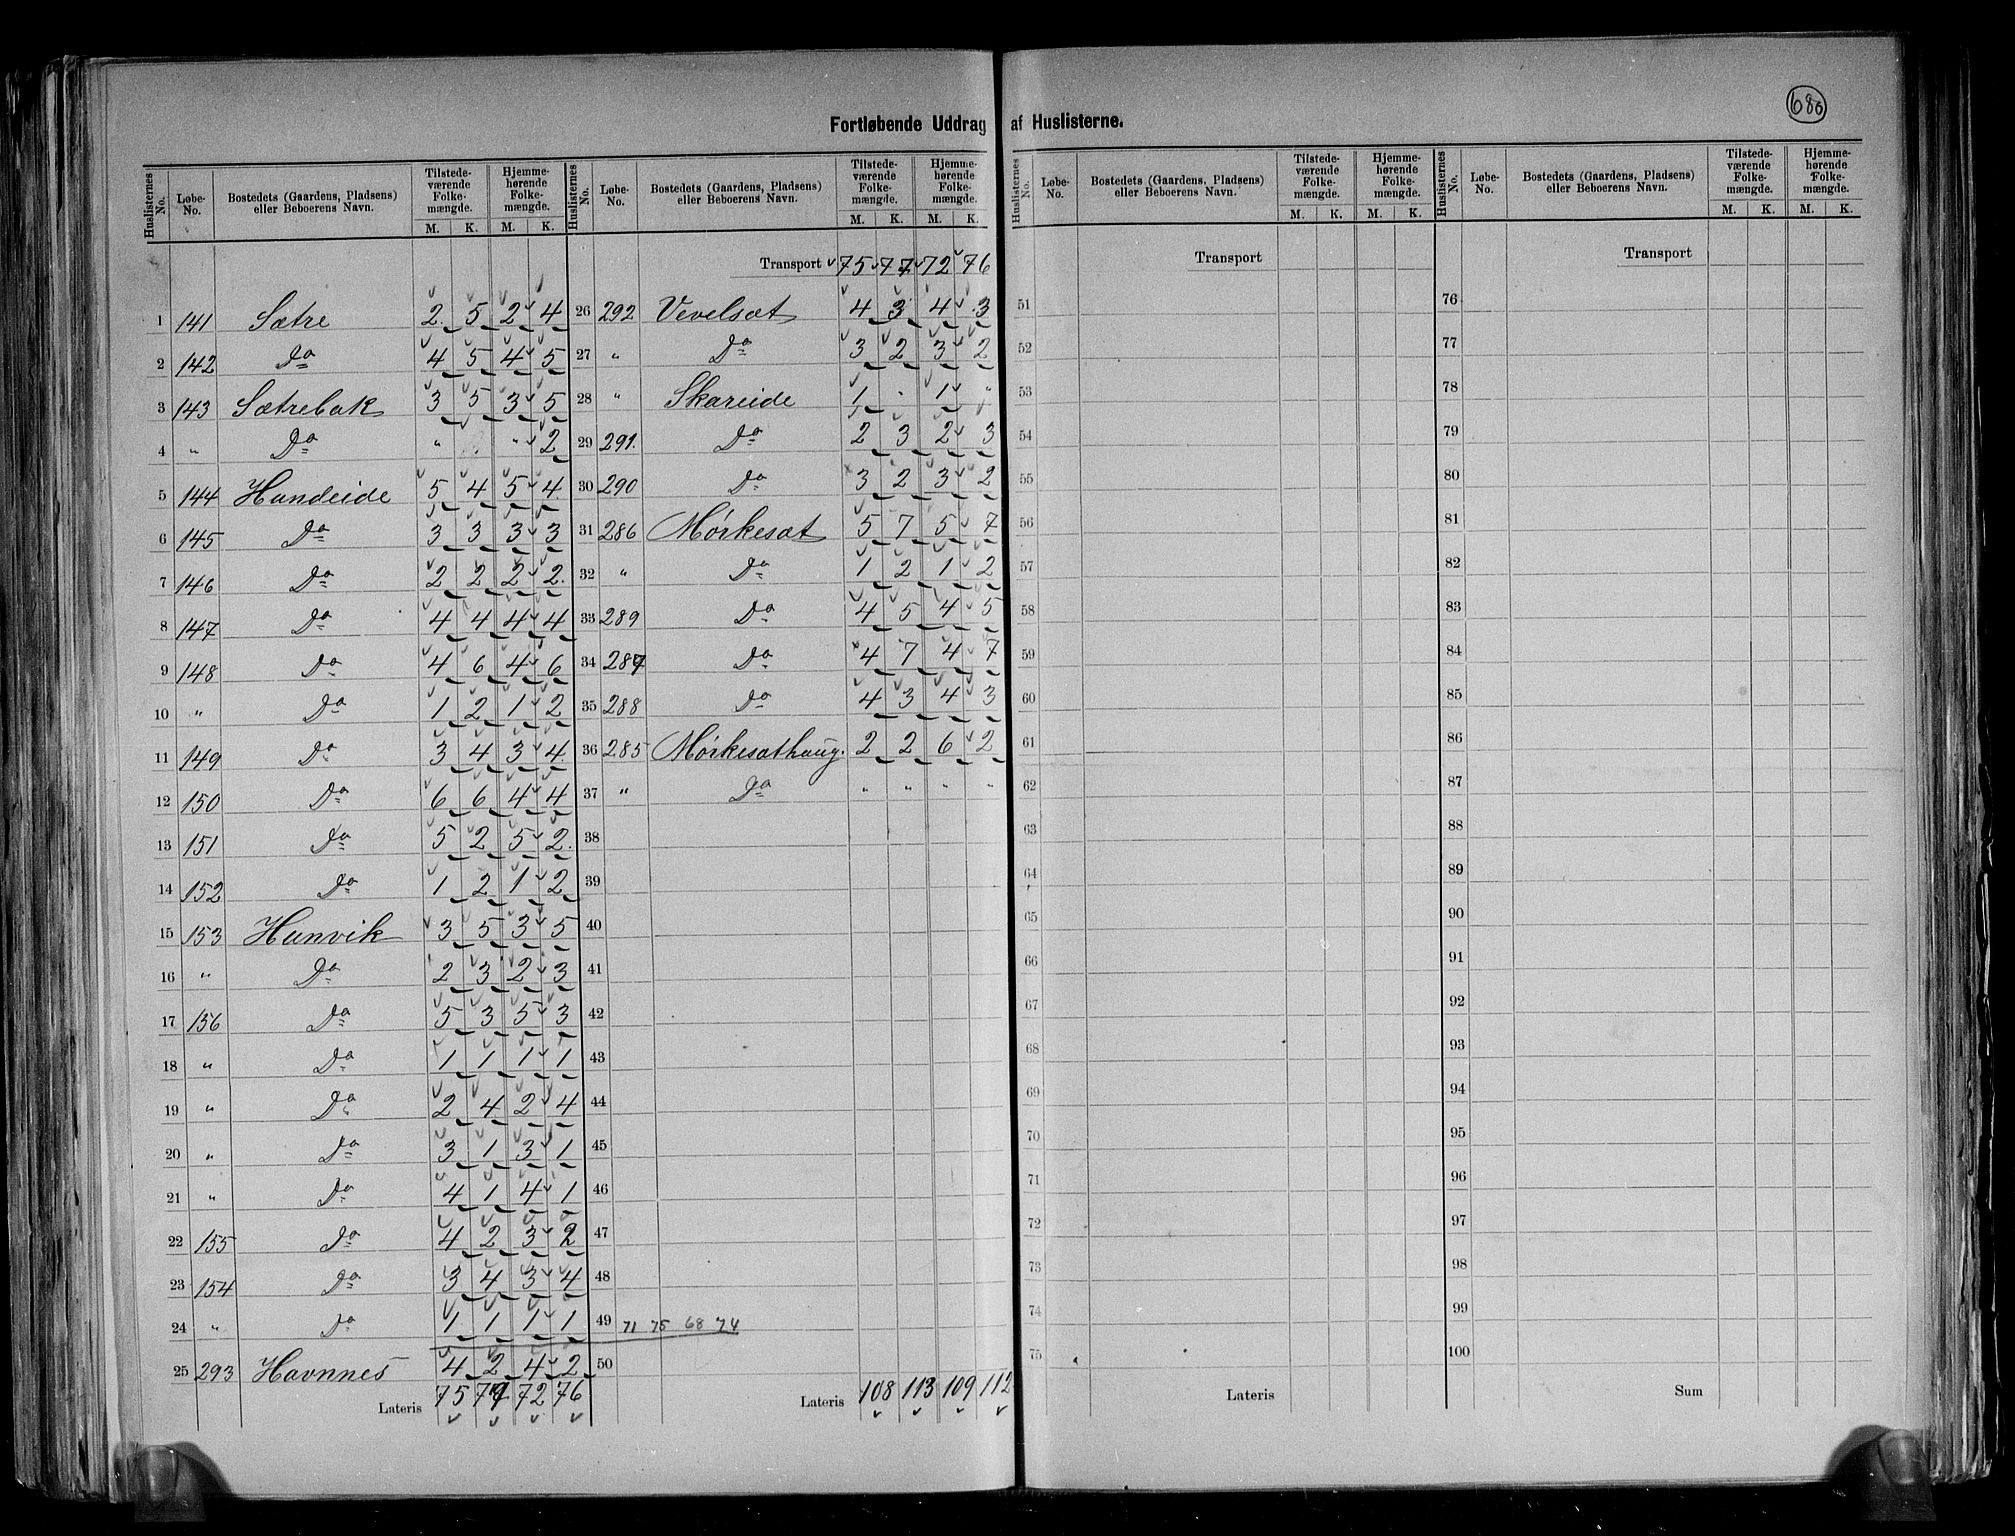 686
Fortløbende Uddrag af Huslisterne.
Huslisternes No. Løbe-No. Bostedets (Gaardens, Pladsen) eller Beboerens Navn. Tilstedeværende Folkemængde. M. K. Hjemmehørende Folkemængde. M. K.
1 141 Sætre 2 5 2 4
2 142 Do 4 5 4 5
3 143 Sætrebak 3 5 3 5
4 " Do " " 2
5 144 Hundeide 5 4 5 4
6 145 Do 3 3 3 3
7 146 Do 2 2 2 2
8 147 Do 4 4 4 4
9 148 Do 4 6 4 6
10 " Do 1 2 1 2
11 149 Do 3 4 3 4
12 150 Do 6 6 4 4
13 151 Do 5 2 5 2
14 152 Do 1 2 1 2
15 153 Hunvik 3 5 3 5
16 " Do 2 3 2 3
17 156 Do 5 3 5 3
18 " Do 1 1 1 1
19 " Do 2 4 2 4
20 " Do 3 1 3 1
21 " Do 4 1 4 1
22 155 Do 4 2 3 2
23 154 Do 3 4 3 4
24 " Do 1 1 1 1
25 293 Havnnes 4 2 4 2
Lateris 75 77 72 76
Huslisternes No. Løbe-No. Bostedets (Gaardens, Pladsen) eller Beboerens Navn. Tilstedeværende Folkemængde. M. K. Hjemmehørende Folkemængde. M. K.
Transport 75 77 72 76
26 292 Vevelsæt 4 3 4 3
27 " Do 3 2 3 2
28 " Skareide 1 " 1 "
29 291. Do 2 3 2 3
30 290 Do 3 2 3 2
31 286 Mørkesæt 5 7 5 7
32 " Do 1 2 1 2
33 289 Do 4 5 4 5
34 287 Do 4 7 4 7
35 288 Do 4 3 4 3
36 285 Mørkesæthaug. 2 2 6 2
37 " Do " " " "
38
39
40
41
42
43
44
45
46
47
48
49 71 75 68 74
50
Lateris 108 113 109 112
Huslisternes No. Løbe-No. Bostedets (Gaardens, Pladsen) eller Beboerens Navn. Tilstedeværende Folkemængde. M. K. Hjemmehørende Folkemængde. M. K.
Transport
51
52
53
54
55
56
57
58
59
60
61
62
63
64
65
66
67
68
69
70
71
72
73
74
75
Lateris
Huslisternes No. Løbe-No. Bostedets (Gaardens, Pladsen) eller Beboerens Navn. Tilstedeværende Folkemængde. M. K. Hjemmehørende Folkemængde. M. K.
Transport
76
77
78
79
80
81
82
83
84
85
86
87
88
89
90
91
92
93
94
95
96
97
98
99
100
Sum